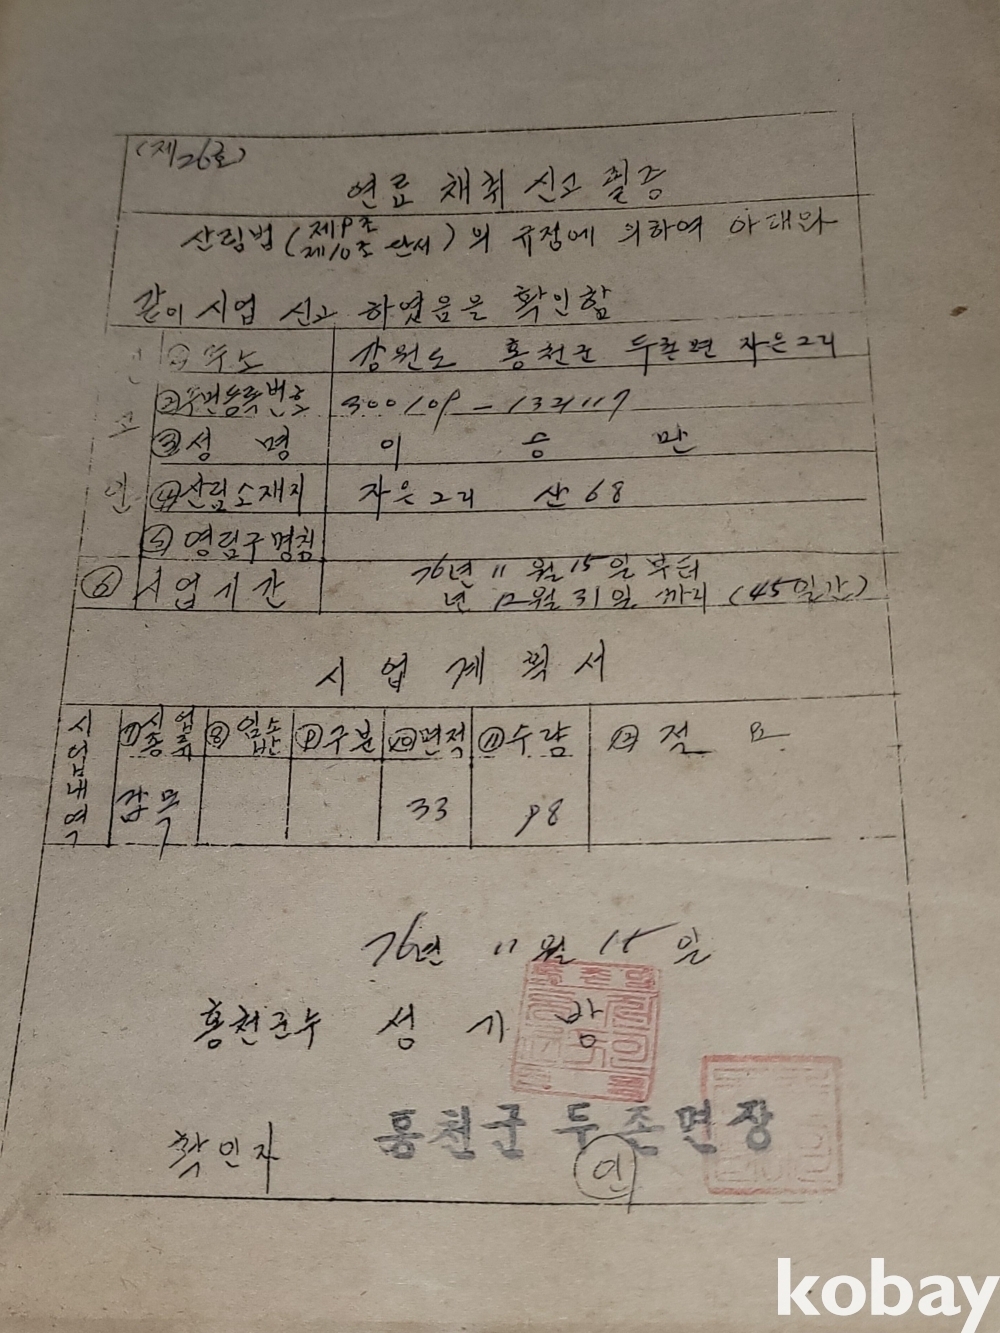 (제26호)
연료 채취 신고 필증
산림법 (제9조 제10조 단서)의 규정에 의하여 아래와
같이 시업 신고 하였음을 확인함
신고인
① 주소 강원도 홍천군 두촌면 자은2리
②주민등록번호 300109-1321117
③성 명 이 승 만
④산림소재지 자은2리 산68
⑤영림구명칭
⑥시업기간 76년 11월 15일 부터
년 12월 31일 까지 (45일간)
시업계획서
시업내역 ⑦시업종류 ⑧임소반 ⑨구분 ⑩면적 ⑪수량 ⑫적 요
잡목 33 98
76년 11월 15일
홍천군수 성 기 방
확인자 홍천군 두촌면장
인
kobay